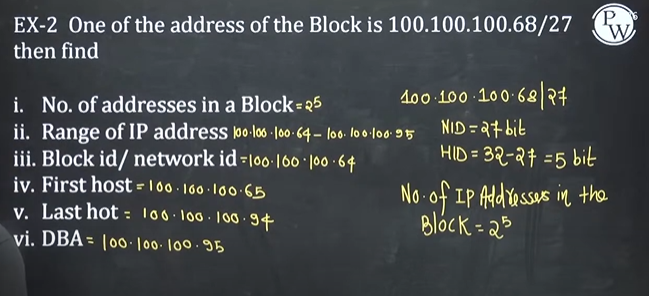 EX-2 One of the address of the Block is 100.100.100.68/27
then find
PW
i. No. of addresses in a Block = 2⁵
ii. Range of IP address 100.100.100.64 - 100.100.100.95
iii. Block id/ network id = 100.100.100.64
iv. First host = 100.100.100.65
v. Last hot = 100.100.100.94
vi. DBA = 100.100.100.95
100.100.100.68/27
NID = 27 bit
HID = 32-27 = 5 bit
No. of IP Addresses in the
Block = 2⁵